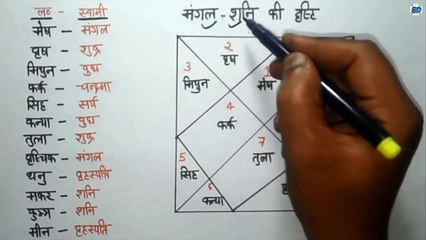 ल० - स्वामी
मेष - मंगल
वृष - शुक्र
मिथुन - बुध
कर्क - चन्द्रमा
सिंह - सूर्य
कन्या - बुध
तुला - शुक्र
वृश्चिक - मंगल
धनु - बृहस्पति
मकर - शनि
कुम्भ - शनि
मीन - बृहस्पति
मंगल - शनि की दृष्टि
2
वृष
3
मिथुन
मेष
4
कर्क
7
तुला
5
सिंह
6
कन्या